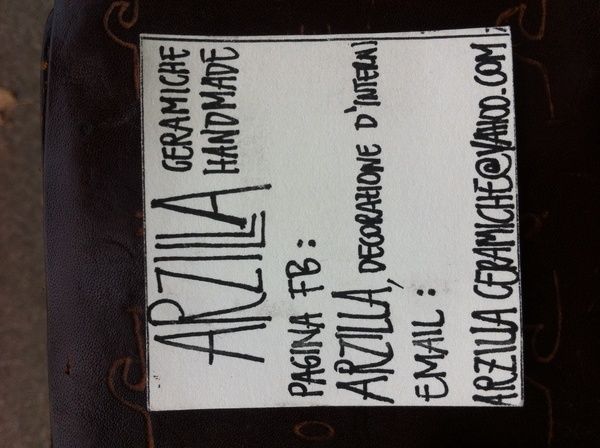 ARZILLA CERAMICHE
HANDMADE
PAGINA FB:
ARZILLA, DECORAZIONE D'INTERNI
EMAIL:
ARZILLA CERAMICHE@YAHOO.COM